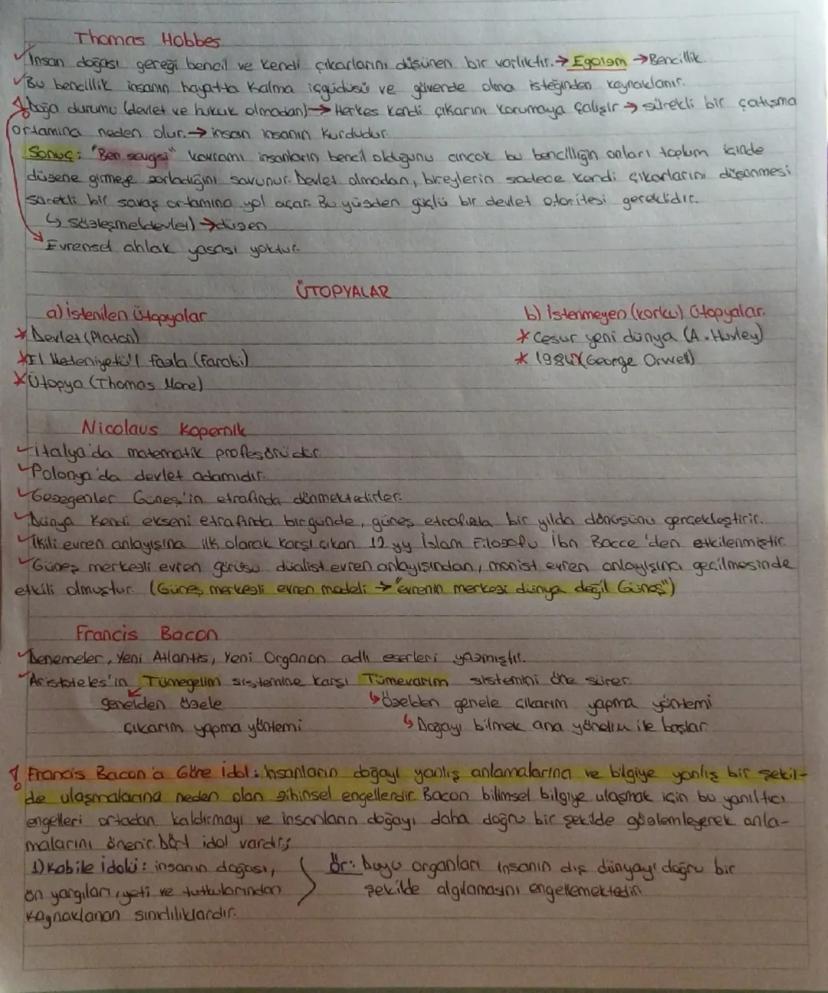 Thomas Hobbes
✓İnsan doğası gereği bencil ve kendi çıkarlarını düşünen bir varlıktır.→Egoizm→Bencillik
✓Bu bencillik insanın hayatta kalma içgüdüsü ve güvende olma isteğinden kaynaklanır.
Doğa durumu (devlet ve hukuk olmadan)→Herkes kendi çıkarını korumaya çalışır→sürekli bir çatışma
ortamına neden olur.→insan insanın kurdudur.
Sonuç: "Ben sevgisi" kavramı insanların bencil olduğunu ancak bu bencilliğin onları toplum içinde
düzene girmeye zorladığını savunur. Devlet olmadan, bireylerin sadece kendi çıkarlarını düşünmesi
sürekli bir savaş ortamına yol açar. Bu yüzden güçlü bir devlet otoritesi gereklidir.
↳ sözleşme(devlet)→düzen
Evrensel ahlak yasası yoktur.
ÜTOPYALAR
a) İstenilen Ütopyalar
* Devlet (Platon)
* El Medeniyetü'l fazıla (Farabi)
* Ütopya (Thomas More)
b) İstenmeyen (korku) Ütopyalar.
* Cesur yeni dünya (A. Huxley)
* 1984 (George Orwell)
Nicolaus Kopernik
✓İtalya'da matematik profesörüdür.
✓Polonya'da devlet adamıdır.
✓Gezegenler Güneş'in etrafında dönmektedirler.
✓Dünya kendi ekseni etrafında bir günde, güneş etrafında bir yılda dönüşünü gerçekleştirir.
✓İkili evren anlayışına ilk olarak karşı çıkan 12.yy İslam Filozofu İbn Bacce'den etkilenmiştir.
✓Güneş merkezli evren görüşü dualist evren anlayışından, monist evren anlayışına geçilmesinde
etkili olmuştur. (Güneş merkezli evren modeli → "evrenin merkezi dünya değil Güneş")
Francis Bacon
✓Denemeler, Yeni Atlantis, Yeni Organon adlı eserleri yazmıştır.
✓Aristoteles'in Tümegelim sistemine karşı Tümevarım sistemini öne sürer.
genelden özele
çıkarım yapma yöntemi
↳özelden genele çıkarım yapma yöntemi
↳Doğayı bilmek ana yönelim ile başlar.
Francis Bacon'a Göre İdol: İnsanların doğayı yanlış anlamalarına ve bilgiye yanlış bir şekil-
de ulaşmalarına neden olan zihinsel engellerdir. Bacon bilimsel bilgiye ulaşmak için bu yanıltıcı
engelleri ortadan kaldırmayı ve insanların doğayı daha doğru bir şekilde gözlemleyerek anla-
malarını önerir. Dört idol vardır;
1) Kabile idolü: insanın doğası,
ön yargıları, yeti ve tutkularından
kaynaklanan sınırlılıklardır.
Ör: duyu organları insanın dış dünyayı doğru bir
şekilde algılamasını engellemektedir.